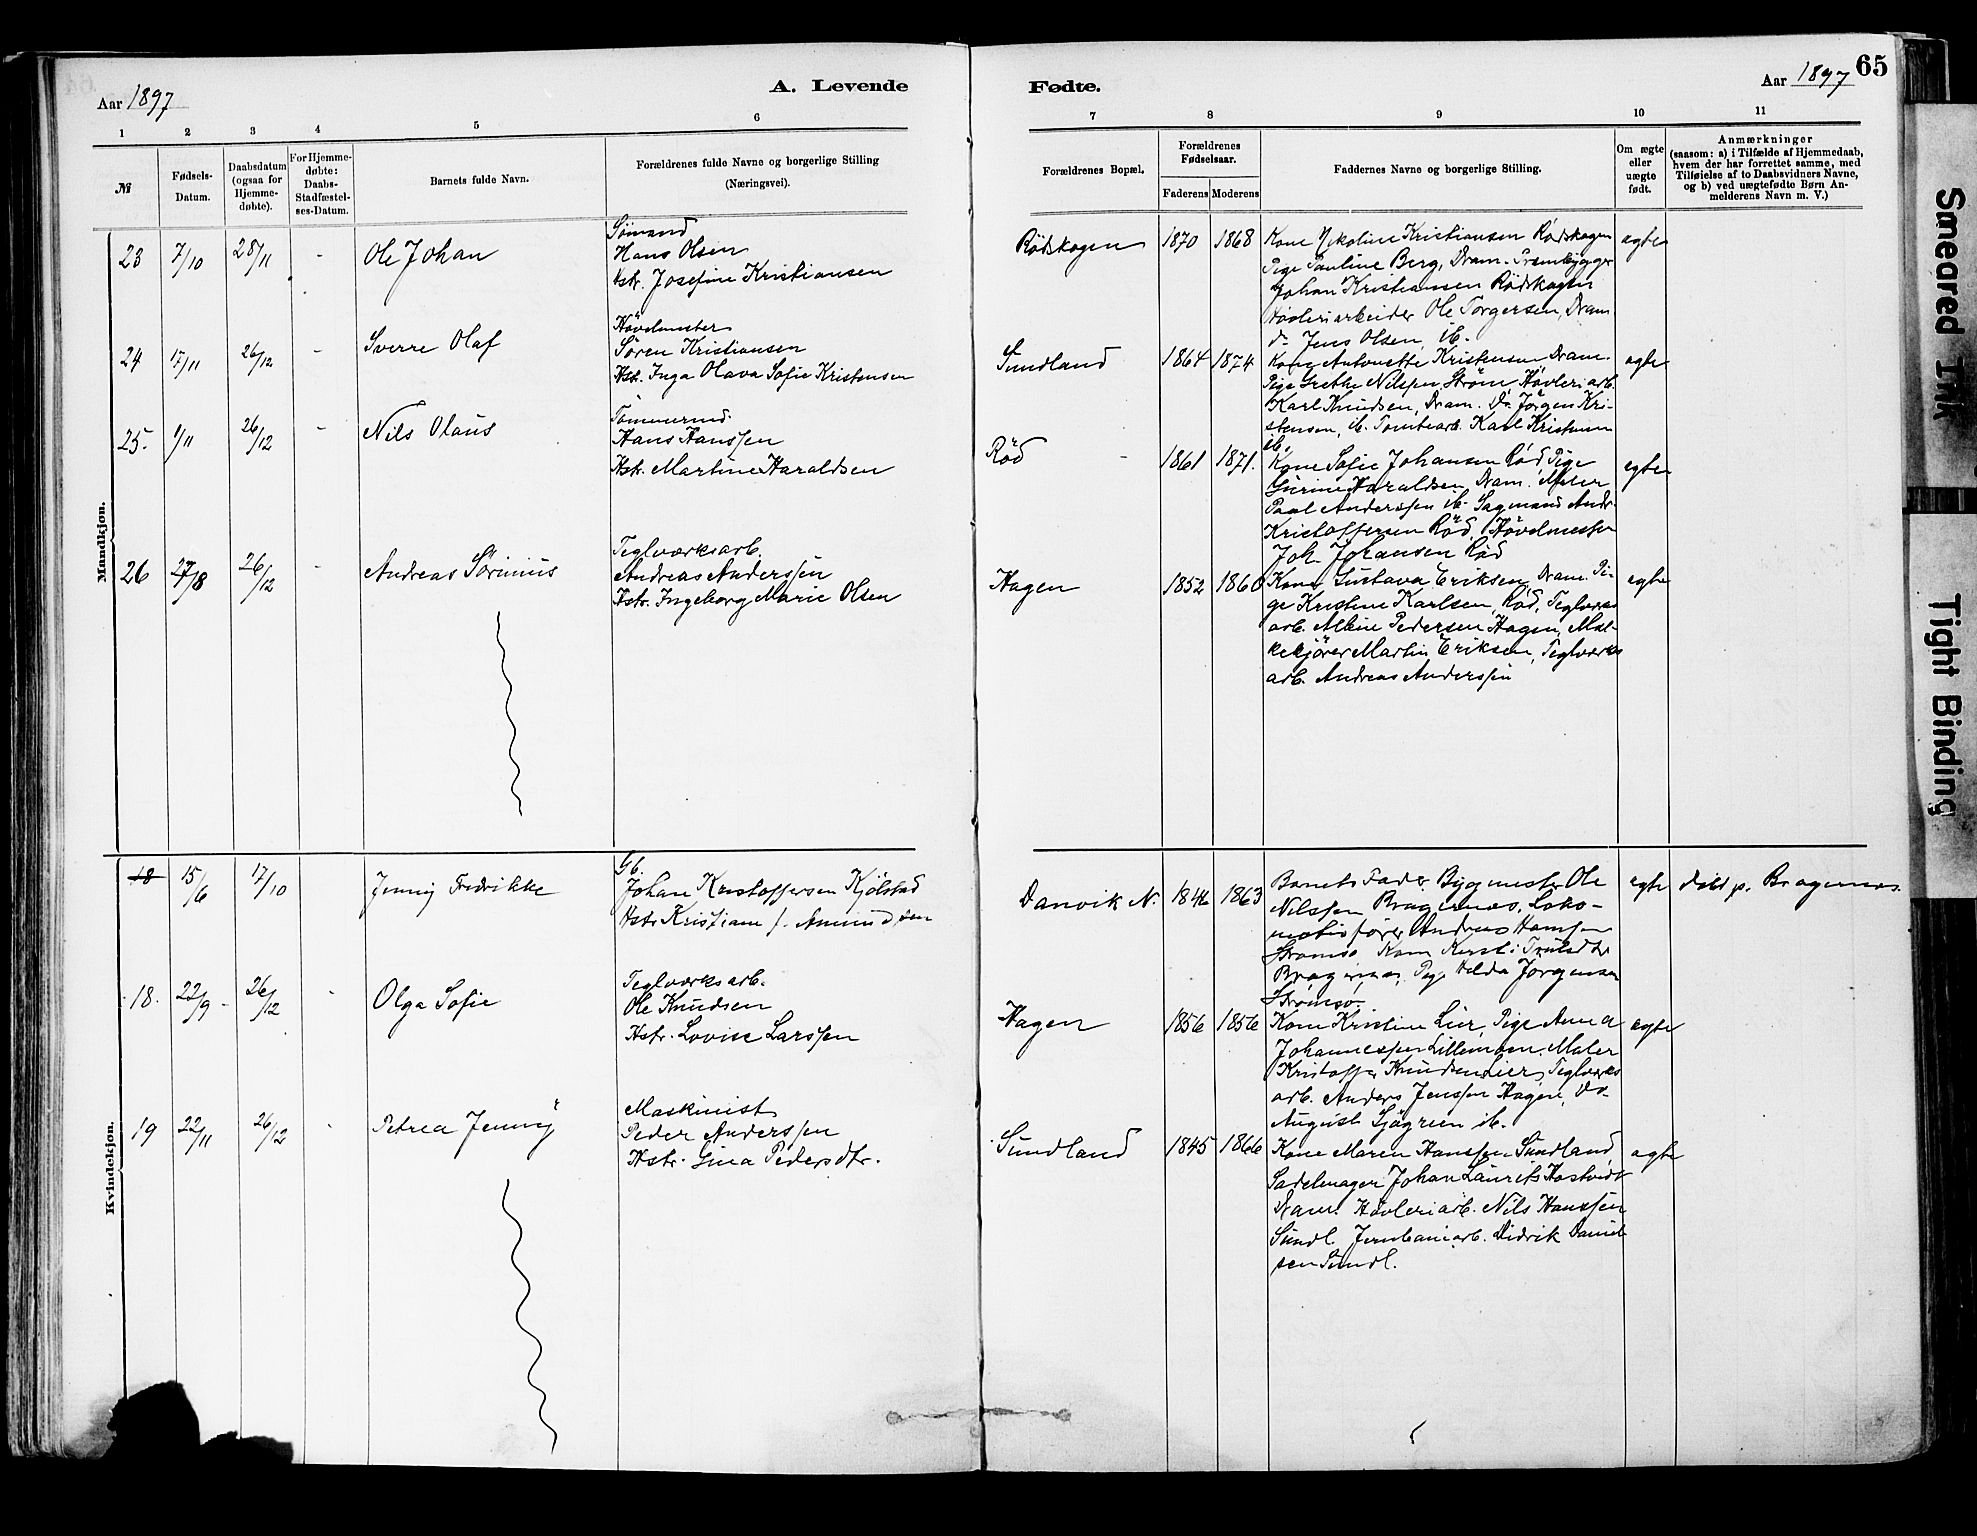 65
Aar 1897
A. Levende
Fødte.
Aar 1897
1 2 3 4 5 6 7 8 9 10 11
№
Fødsels-
Datum.
Daabsdatum
(ogsaa for
Hjemme-
døbte).
For Hjemme-
døbte:
Daabs-
Stadfæstel-
ses-Datum.
Barnets fulde Navn.
Forældrenes fulde Navne og borgerlige Stilling
(Næringsvei).
Forældrenes Bopæl.
Forældrenes
Fødselsaar.
Faderens Moderens
Faddernes Navne og borgerlige Stilling.
Om ægte
eller
uægte
født.
Anmærkninger
(saasom: a) i Tilfælde af Hjemmedaab,
hvem der har forrettet samme, med
Tilføielse af to Daabsvidners Navne,
og b) ved uægtefødte Børn An-
melderens Navn m. V.)
Mandkjøn.
23 7/10 28/11 - Ole Johan
Sømand
Hans Olsen
Hstr. Josefine Kristiansen
Rödskogen 1870 1868
Kone Nikoline Kristiansen Rödskogen
Pige Pauline Berg, Dram.
Johan Kristiansen Rödskogen
Høvleriarbeider Ole Torgersen, Dram.
do Jens Olsen, ib.
egte
24 17/11 26/12 - Sverre Olaf
Høvelmester
Søren Kristiansen
Hstr. Inga Olava Sofie Kristensen
Sundland 1864 1874
Kone Antonette Kristensen Dram.
Pige Grethe Nilssen, Strøm, Høvleriarb.
Karl Knudsen, Dram. Do. Jörgen Kri-
stensen, ib. Tomtearb. Karl Kristensen
ib.
egte
25. 1/11 26/12 - Nils Olaus
Tömmermd.
Hans Hanssen
Hstr. Martine Haraldsen
Röd 1861 1871.
Kone Sofie Johansen Röd, Pige
Gurine Haraldsen, Dram. Maler
Paul Anderssen ib. Sagmand Andr.
Kristoffersen Röd, Hövelmester
Joh. Johansen Röd
egte
26 27/8 26/12 - Andreas Sörinius
Teglværksarb.
Andreas Anderssen
Hstr. Ingeborg Marie Olsen
Hagen 1852 1860
Kone Gustava Eriksen, Dram. Pi-
ge Kristine Karlsen, Röd, Teglværks
arb. Pedersen Hagen, Mæl-
kekjörer Martin Eriksen, Teglværks
arb. Andreas Anderssen
egte
Kvindekjøn.
18 15/6 17/10 Jenny Fredrikke
Gb.
Johan Kristoffersen Kjölstad
Hstr. Kristiane f. Amundsen
Danvik N. 1846 1863
Barnets Fader, Bygmester Ole
Nilssen Bragernæs, Loko-
motivfører Andreas Hanssen
Strømsø Kone Kersti Trulsdtr
Bragernæs, Pige Hilda Jørgensen
Strømsø.
egte døbt p. Bragernæs
18. 22/9 - 26/12 - Olga Sofie
Teglværksarb.
Ole Knudsen
Hstr. Lovise Larssen
Hagen 1856 1856
Kone Kristine Lier, Pige Anna
Johannessen Lillemoen. Maler
Kristoffer Knudsen Lier, Teglværks
arb. Anders Jenssen Hagen, Do
August Sjögren ib.
egte
19 22/11 26/12 - Petrea Jenny
Maskinist
Peder Anderssen
Hstr. Gina Pedersdtr.
Sundland 1845 1866
Kone Maren Hanssen Sundland,
Sadelmager Johan Laurits Hostvedt
Dram. Høvleriarb. Nils Hanssen
Sundl. Jernbanearb. Didrik Daniel
sen Sundl.
egte
Smeared Ink
Tight Binding